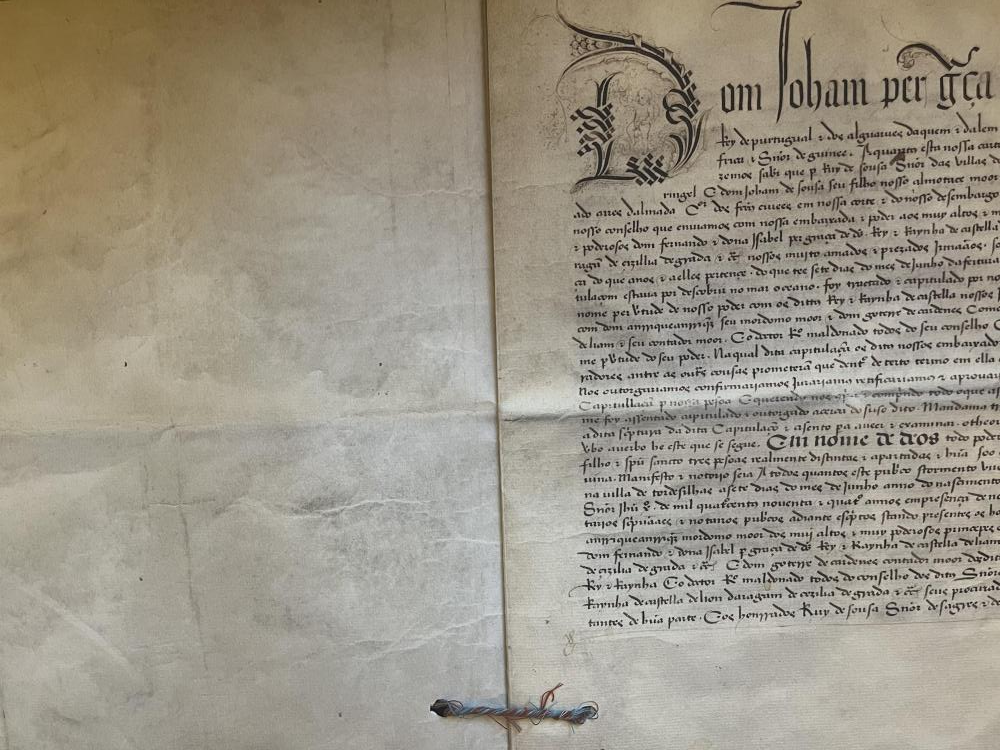 Dom Joham per g̃ça
Rey de purtugual ⁊ dos alguarues daquem ⁊ dalem
frica ⁊ Sñor de guinee. A quantos esta nossa carta
zemos sabr que p̱ Ruy de sousa Sñor das villas de
ringel E dom Joham de sousa seu filho nosso almotace moor
nosso conselho que enuiamos com nossa embaixada ⁊ poder aos muy altos ⁊ m
⁊ poderosos dom fernando ⁊ dona Isabel per graça de ds̃ Rey ⁊ Raynha de castella
de cizillia de grada ⁊ c̃ nossos muito amados ⁊ prezados Irmaãos.
tulaçom estaua por descobrir no mar oceano. foy tractado ⁊ capitulado por no
nome per v̓tude de nosso poder com os dittos Rey ⁊ Raynha de castella nossos
com dom anrrique anrriq̃z seu mordomo moor ⁊ dom goterre de cardenes Come
de liam ⁊ seu contador moor. E o detor Ro maldonado todos do seu conselho
me p̱ v̓tude do seu poder. Na qual dita capitulaçã os ditos nossos embaixado
radores antre as outras cousas prometerã que dentro de certo termo em ella
Nos outorgariamos confirmariamos Jurariamos retificariamos ⁊ aprouari
Capitullaçã p̱ nossa pesoa E querendo nos ⁊ comprindo todo o que as
me foy assentado capitulado ⁊ outorgado acerca do suso dito. Mandamos
a dita scp̃tura da dita Capitulaçõ ⁊ asento pa aueer ⁊ examinar. o theor
v̓bo a verbo he este que se segue. Em nome de deos todo pode
filho ⁊ spũ sancto tres pesoas realmente distintas ⁊ apartadas ⁊ hũa soo
uina. Manifesto ⁊ notorio seia A todos quantos este pubrico stormento
na villa de tordesilhas a sete dias do mes de Junho anno do nascimento
Sñor Jhũ x̃ de mil quatrocentos nouenta ⁊ quatro annos em presença de
tarios ⁊ notairos pubricos adiante escriptos stando presentes os ho
anrrique anrriq̃z mordomo moor dos muj altos ⁊ muy poderosos princepes
dom fernando ⁊ dona Isabel p̱ graça de ds̃ Rey ⁊ Raynha de castella de liam
de cizilia de grada ⁊ c̃ E dom goterre de cardenes contador moor dos ditos
Rey ⁊ Raynha E o detor Ro maldonado todos do conselho dos ditos Sñor
Raynha de castella de liom daragam de cezilia de grada ⁊ c̃ seus procurad
tantes de hũa parte. E os honrrados Ruy de sousa Sñor de sagres ⁊ de